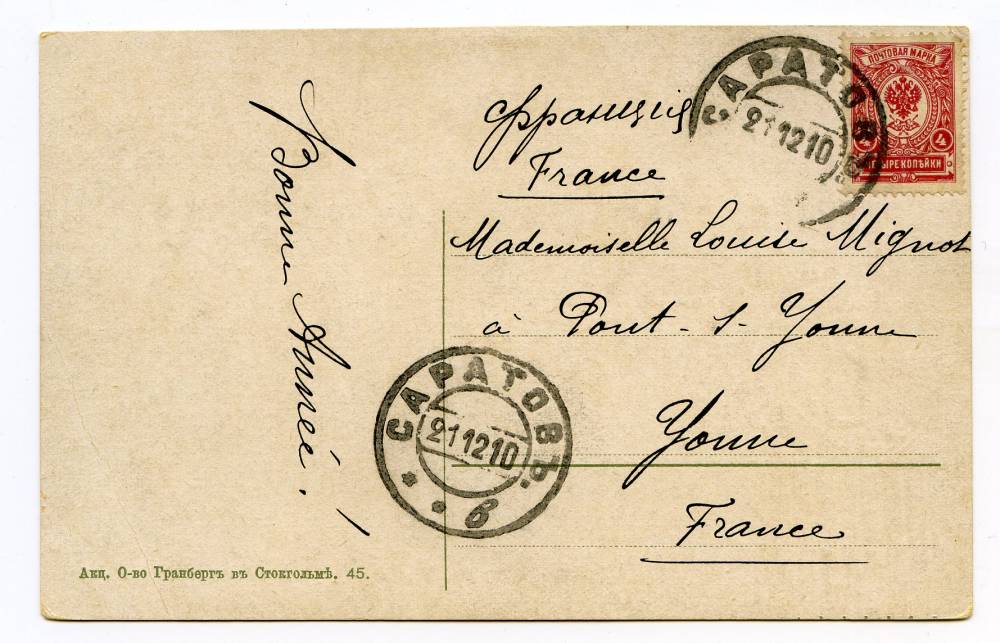 Bonne Année !
Франция
France
Mademoiselle Louise Mignot
à Pont-s-Yonne
Yonne
France
ПОЧТОВАЯ МАРКА
4 4
ЧЕТЫРЕ КОПѢЙКИ
САРАТОВЪ
21 12 10
САРАТОВЪ.
21 12 10
* * в
Акц. О-во Гранбергъ въ Стокгольмѣ. 45.